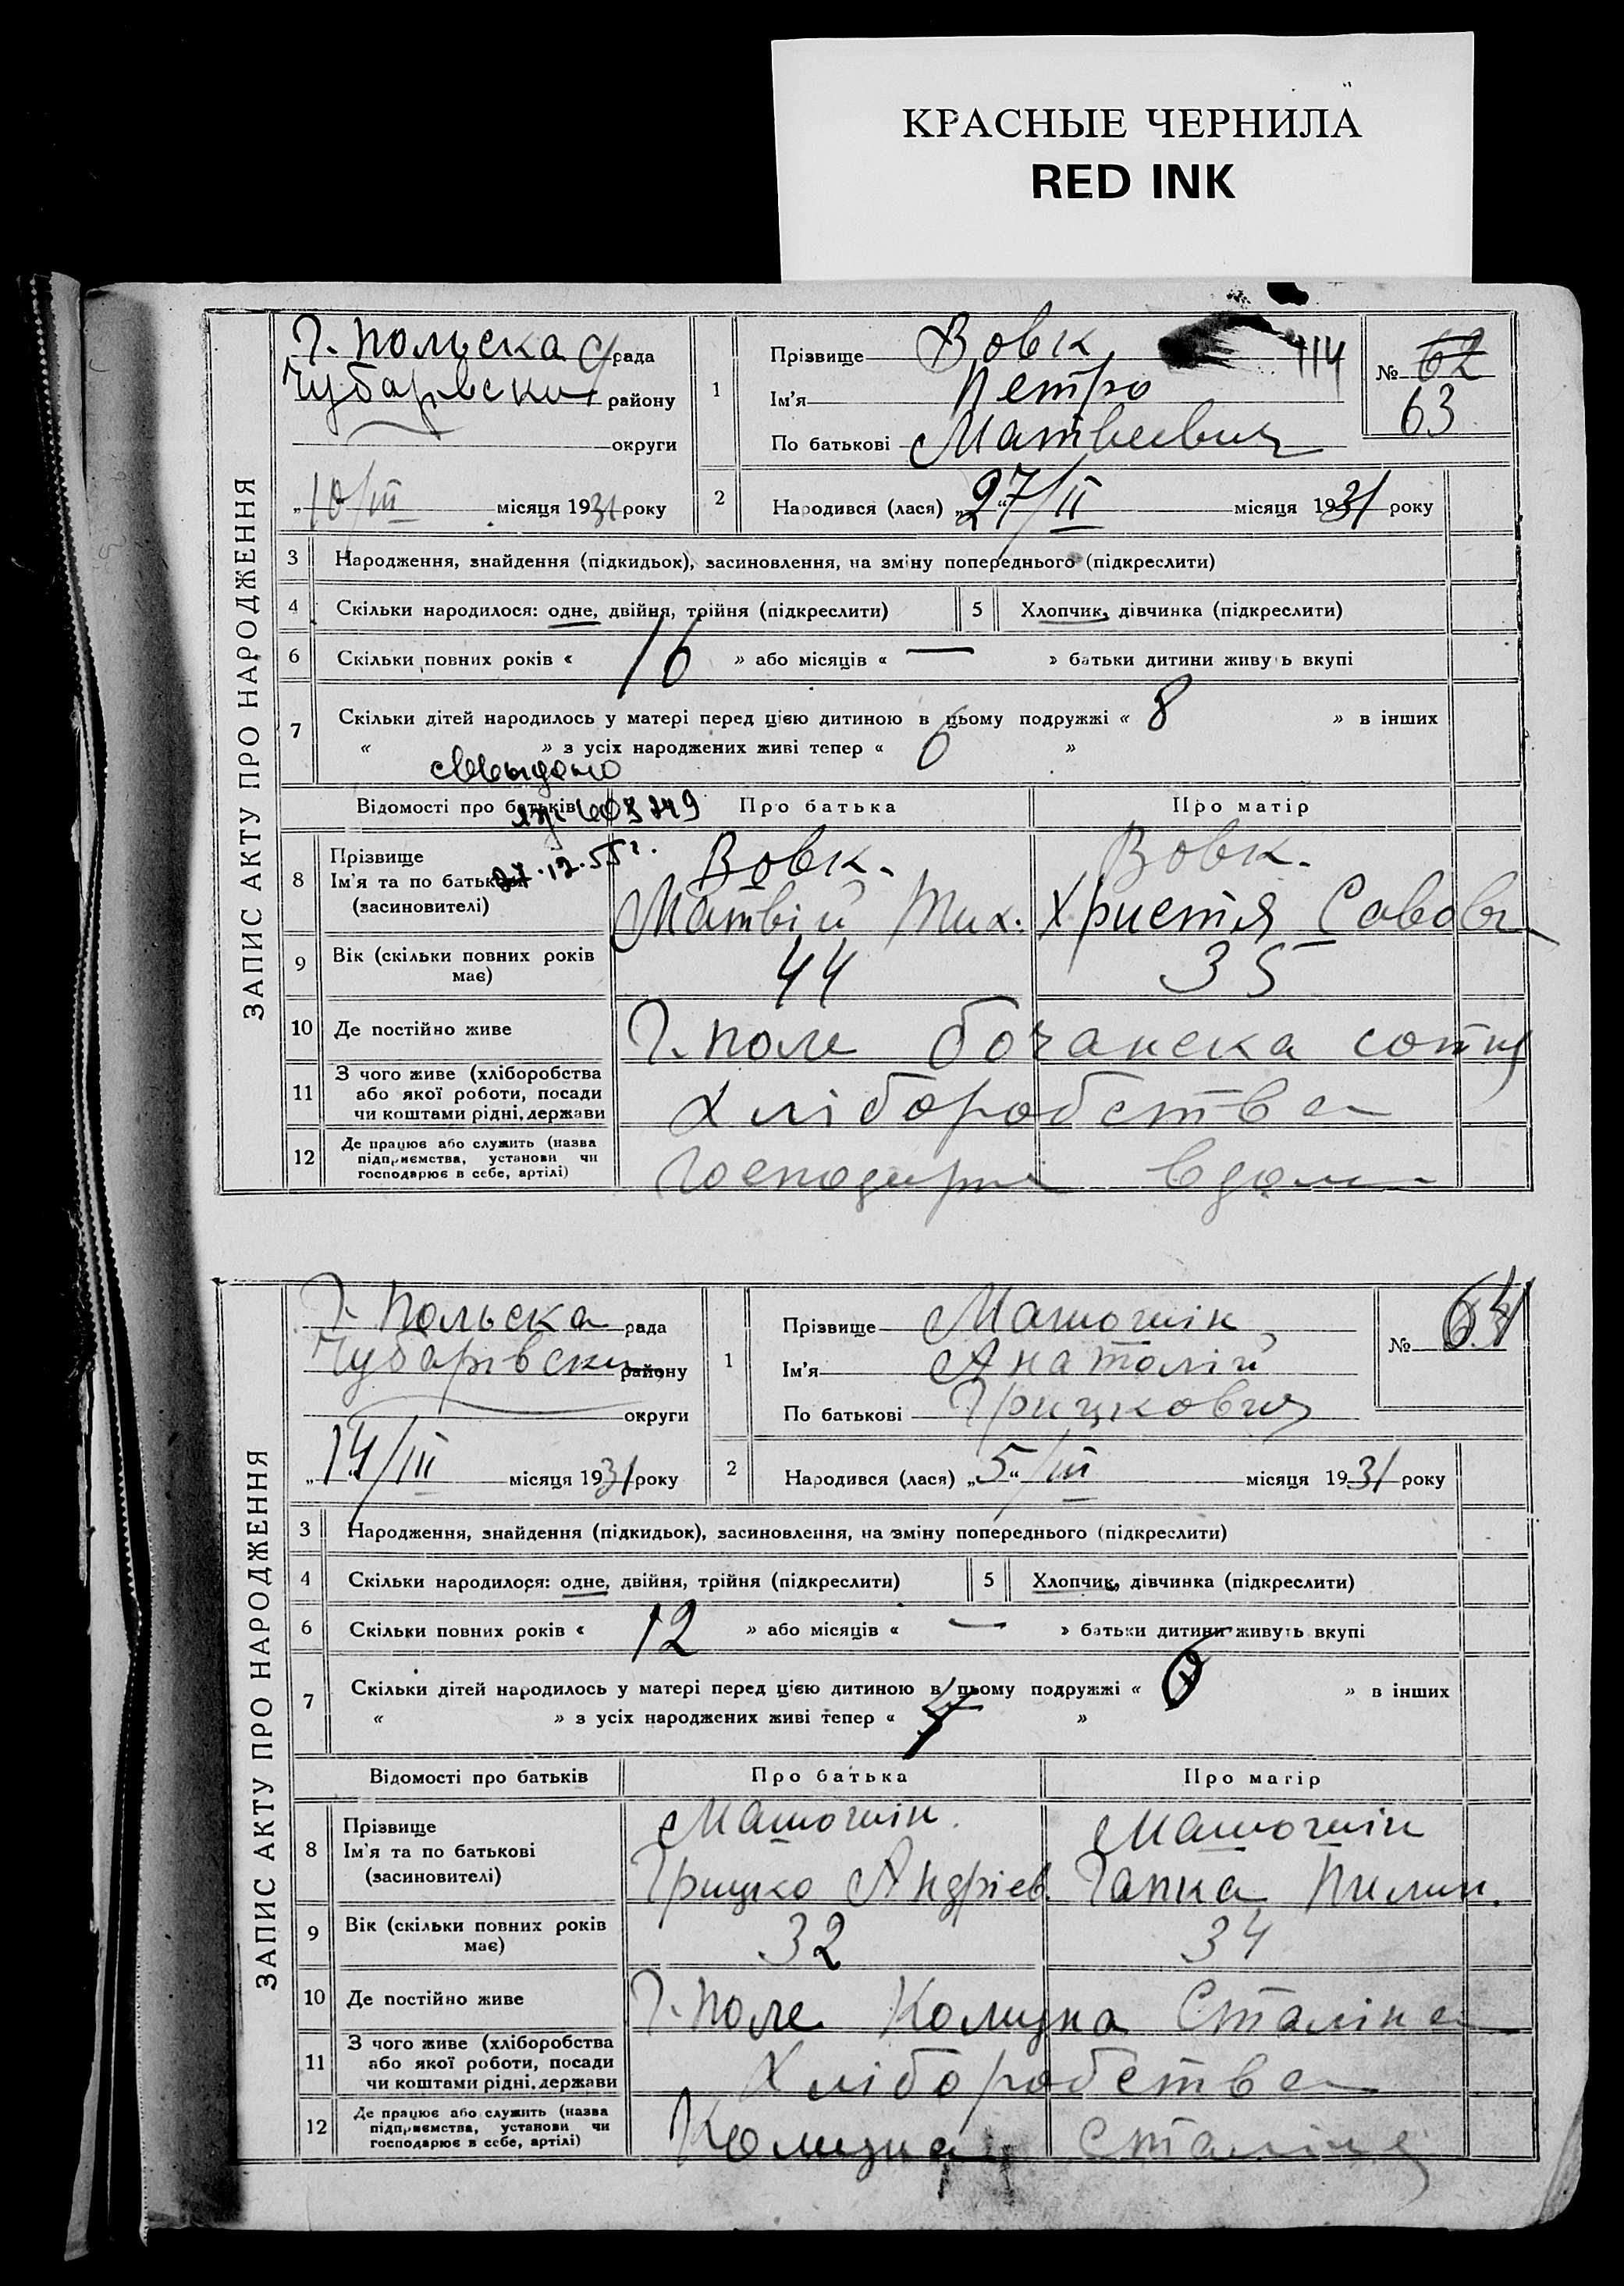 КРАСНЫЕ ЧЕРНИЛА
RED INK
ЗАПИС АКТУ ПРО НАРОДЖЕННЯ
Г. Польска с/рада
Чубарівски району
округи
„10/III місяця 1931 року
1
Прізвище Вовк 114
Ім'я Петро
По батькові Матвеевич
№ 62
63
2
Народився (лася) „27/II місяця 1931 року
3 Народження, знайдення (підкидьок), засиновлення, на зміну попереднього (підкреслити)
4 Скільки народилося: одне, двійня, трійня (підкреслити) 5 Хлопчик, дівчинка (підкреслити)
6 Скільки повних років « 16 » або місяців « — » батьки дитини живуть вкупі
7 Скільки дітей народилось у матері перед цією дитиною в цьому подружжі « 8 » в інших
« » з усіх народжених живі тепер « 6 »
Відомості про батьків Про батька Про матір
12.55 г.
8 Прізвище
Ім'я та по батькові
(засиновителі)
Вовк. Вовк.
Матвій Тих. Христя Савовн
9 Вік (скільки повних років має) 44 35
10 Де постійно живе Г. поле бочанска сотня
11 З чого живе (хліборобства або якої роботи, посади чи коштами рідні, держави Хліборобства
12 Де працює або служить (назва підприємства, установи чи господарює в себе, артілі) Господарки вдома
ЗАПИС АКТУ ПРО НАРОДЖЕННЯ
Г. Польска рада
Чубарівски району
округи
„14/III місяця 1931 року
1
Прізвище Машошін
Ім'я Анатолій
По батькові Грицкович
№ 64
2
Народився (лася) „5“/III місяця 1931 року
3 Народження, знайдення (підкидьок), засиновлення, на зміну попереднього (підкреслити)
4 Скільки народилося: одне, двійня, трійня (підкреслити) 5 Хлопчик, дівчинка (підкреслити)
6 Скільки повних років « 12 » або місяців « — » батьки дитини живуть вкупі
7 Скільки дітей народилось у матері перед цією дитиною в цьому подружжі « » в інших
« » з усіх народжених живі тепер « »
Відомості про батьків Про батька Про матір
8 Прізвище
Ім'я та по батькові
(засиновителі)
Машошін. Машошін
Грицко Андріев. Гапка Пилип.
9 Вік (скільки повних років має) 32 34
10 Де постійно живе Г. поле Комуна Сталіна
11 З чого живе (хліборобства або якої роботи, посади чи коштами рідні, держави Хліборобства
12 Де працює або служить (назва підприємства, установи чи господарює в себе, артілі) Комуна Сталіна